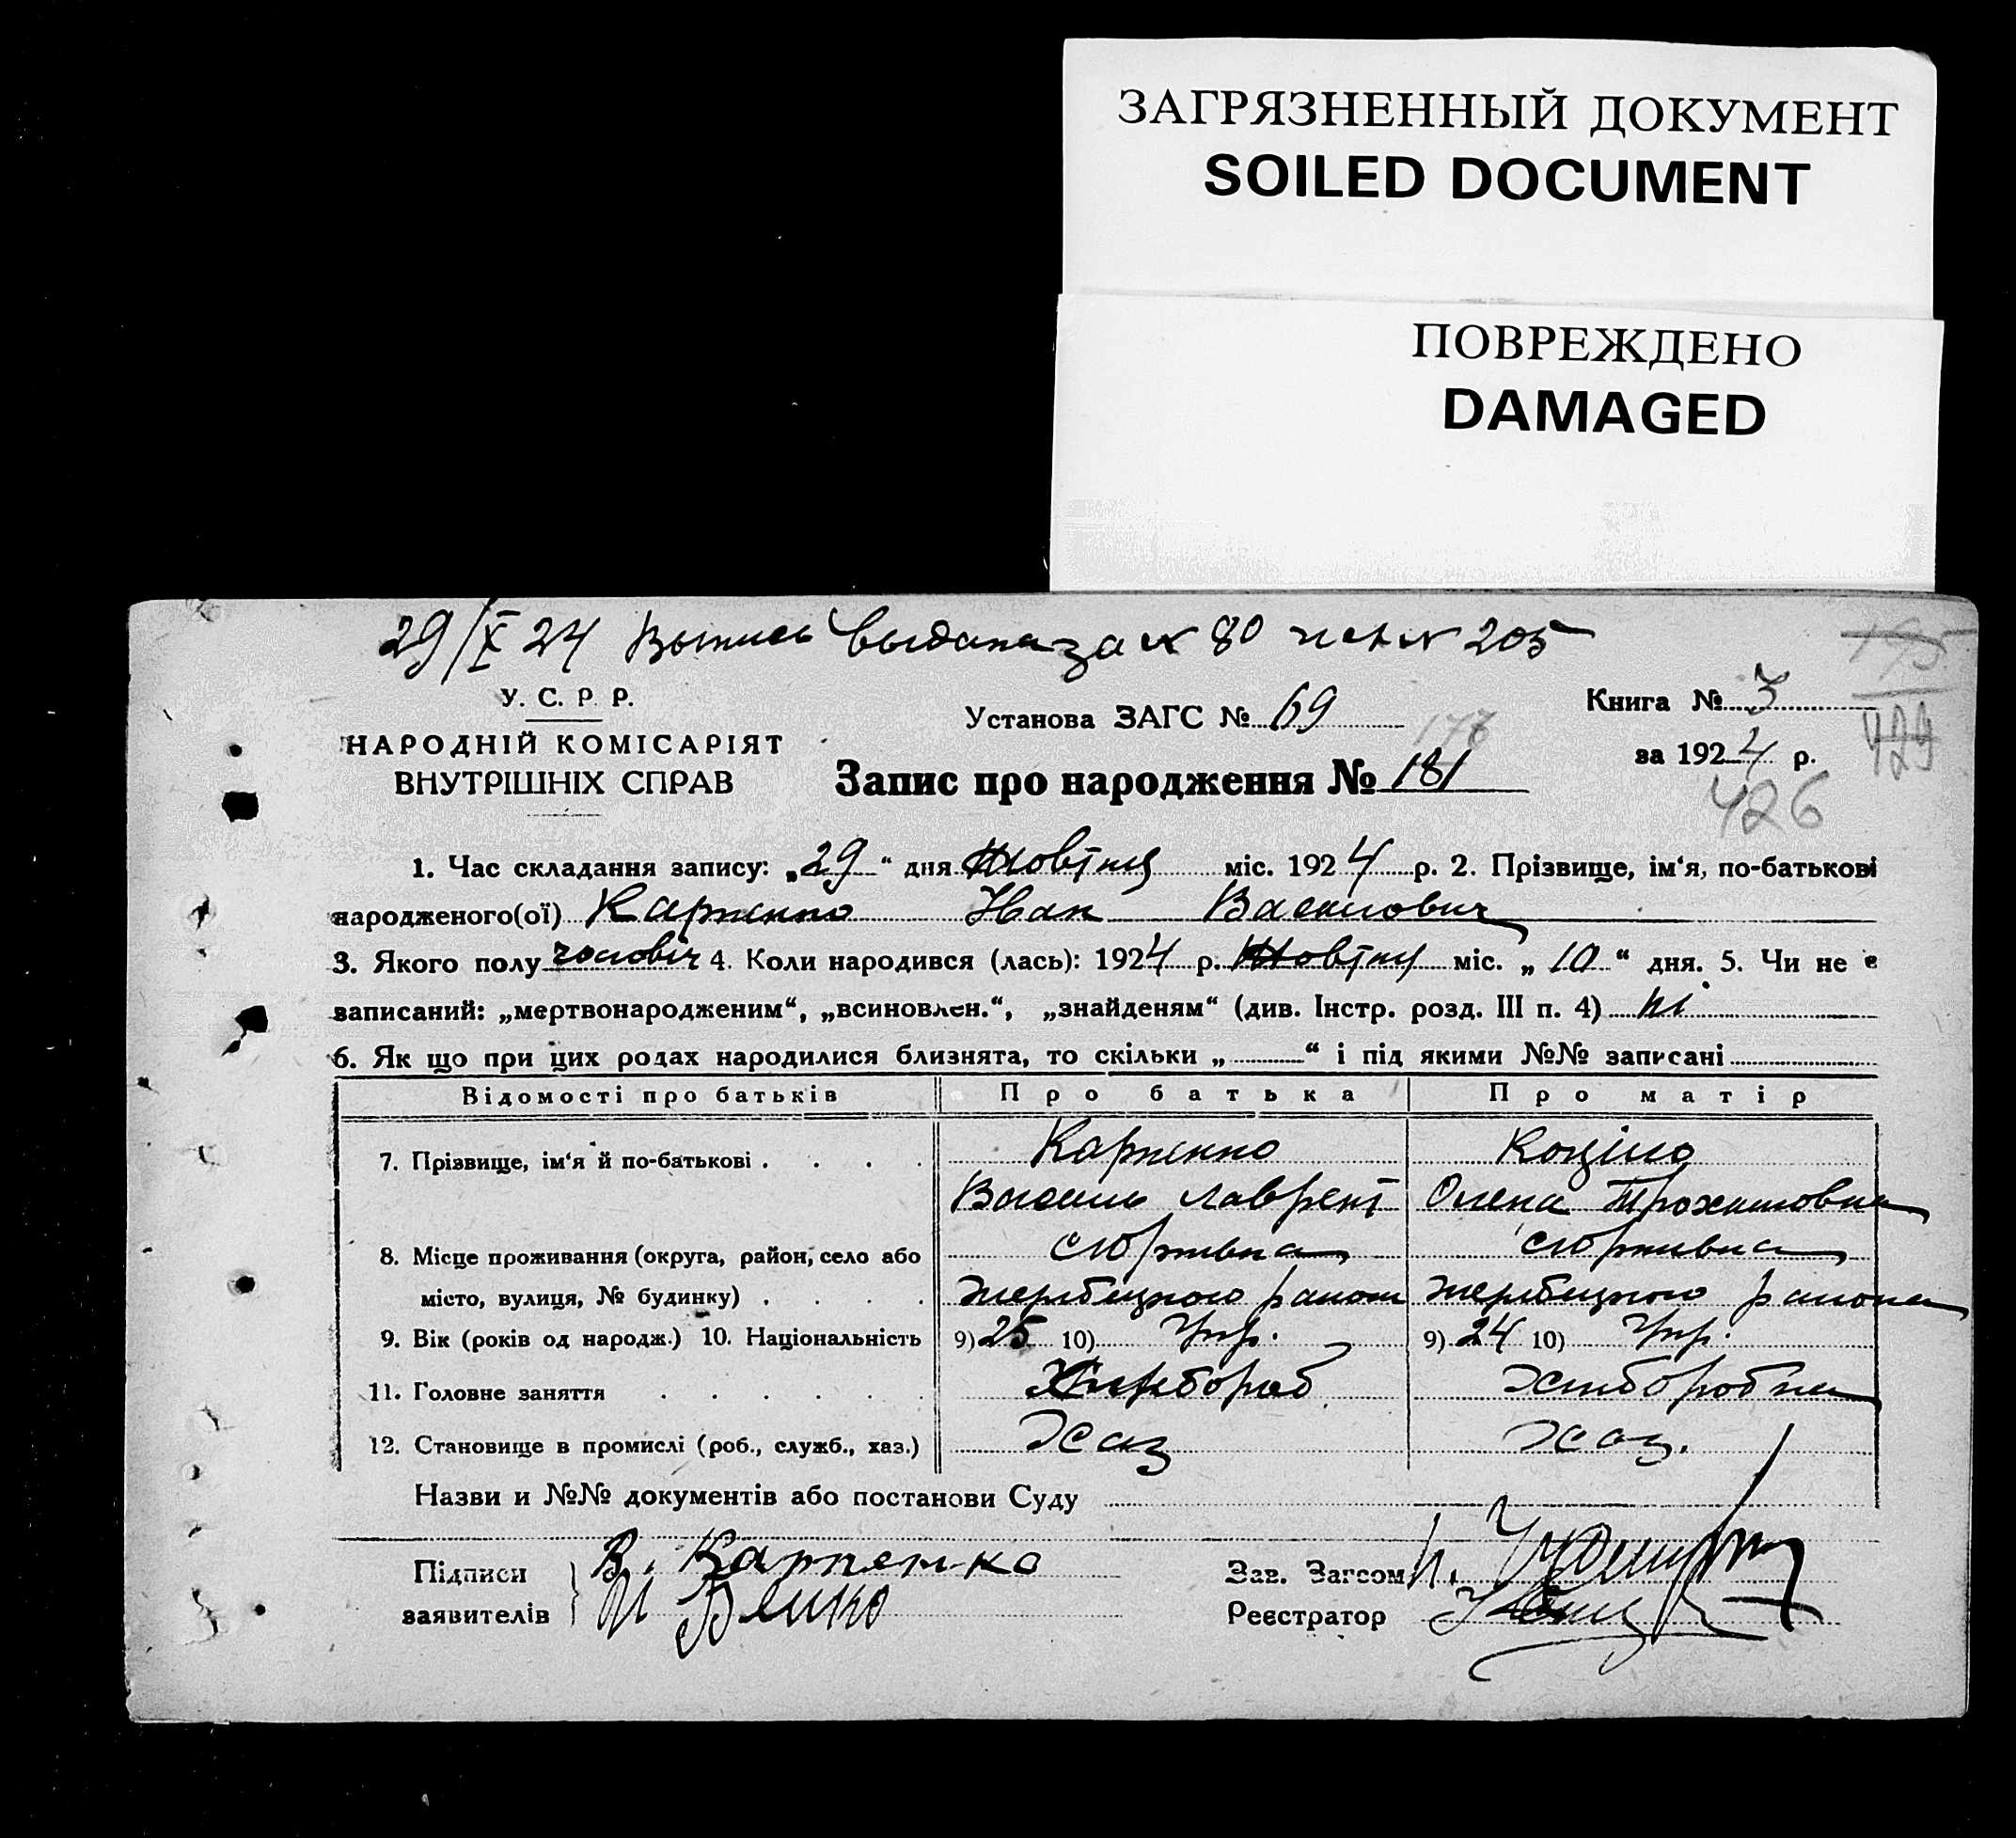 ЗАГРЯЗНЕННЫЙ ДОКУМЕНТ
SOILED DOCUMENT
ПОВРЕЖДЕНО
DAMAGED
29/X 24 Выпись выдана за № 80 и сч № 205
195
У. С. Р. Р.
НАРОДНІЙ КОМІСАРІЯТ
ВНУТРІШНІХ СПРАВ
Установа ЗАГС № 69
Книга № 3
429
за 1924 р.
Запис про народження № 181
426
1. Час складання запису: „29“ дня Жовтня міс. 1924 р. 2. Прізвище, ім‘я, по-батькові
народженого(ої) Карпенко Іван Васильович
3. Якого полу чоловіч 4. Коли народився (лась): 1924 р. Жовтня міс. „10“ дня. 5. Чи не є
записаний: „мертвонародженим“, „всиновлен.“, „знайденям“ (див. Інстр. розд. III п. 4) ні
6. Як що при цих родах народилися близнята, то скільки „ “ і під якими №№ записані
Відомості про батьків Про батька Про матір
7. Прізвище, ім‘я й по-батькові Карпенко
Василь Лаврент Олена Трохимовна
8. Місце проживання (округа, район, село або
місто, вулиця, № будинку) Жеребецького району Жеребецького району
9. Вік (років од народж.) 10. Національність 9) 25 10) Укр. 9) 24 10) Укр.
11. Головне заняття Хлібороб Хліборобка
12. Становище в промислі (роб., служб., хаз.) Хаз Хаз.
Назви и №№ документів або постанови Суду
Підписи В. Карпенко Зав. Загсом
заявителів Реєстратор